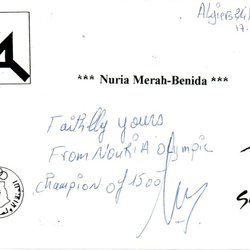 17.
*** Nuria Merah-Benida ***
Faithlly yours
From NOURIA Olympic
champion of 1500